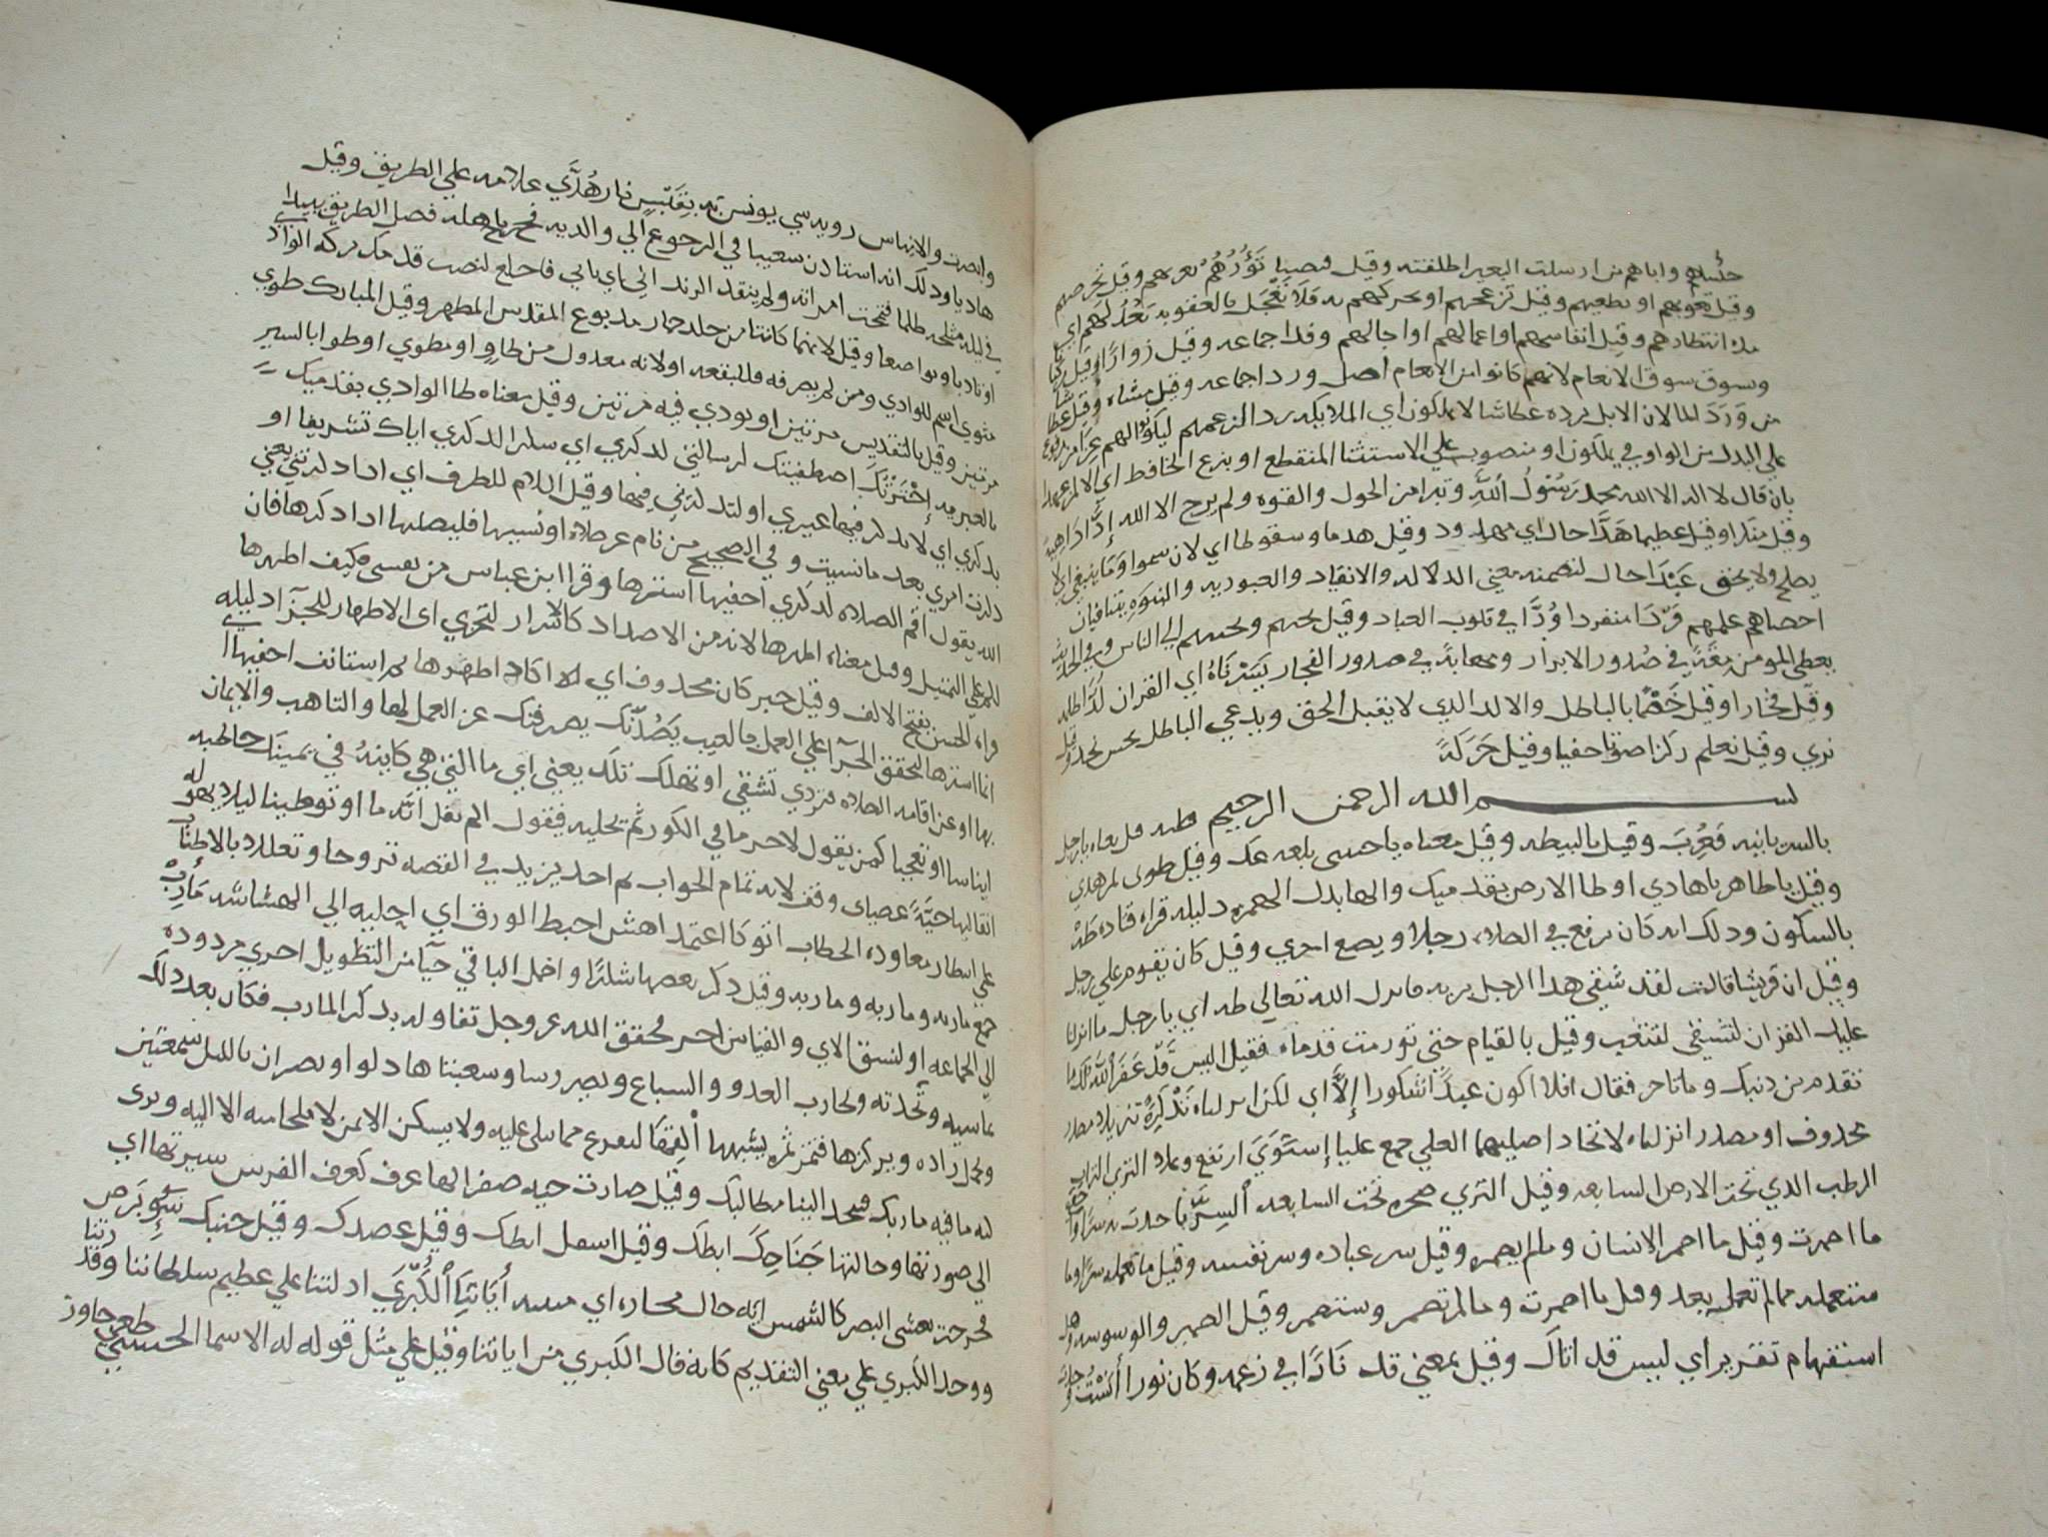 خليناهم واياهم من ارسلت البعير اطلقته وقيل تَؤُزُّهُمْ وقيل
وقيل تغويهم او تطغيهم وقيل تزعجهم او تحركهم فَلَا تَعْجَل بالعقوبه نَعُدُّ لَهُم اي
مده انتظارهم وقيل انفاسهم او اعمالهم او اجالهم وفدا جماعه وقيل زوارا وقيل
ونسوق سوق الانعام لانهم كانوا من الانعام اضل وردا جماعه وقيل مشاه وقيل عطاشا
من وَرَدَ الما لان الابل ترده عطاشا لا يملكون اي الملايكه رد الزعمهم ليكونوا لهم عزا مرفوع
علي البدل من الواو في يملكون او منصوب علي الاستثنا المنقطع او بنزع الخافض اي الا لمن عهدا
بان قال لا اله الا الله محمد رَسُولُ اللَّهِ وتبرا من الحول والقوه ولم يرج الا الله إِدًّا دَاهِيه
وقيل منكرا وقيل عظيما هَدًّا حال اي مهدود وقيل هدما وسقوطا اي لان سموا وَمَا يَنبَغِي لا
يصلح ولا يحق عَبْدًا حال لتضمنه معني الدلاله والانقياد والعبوديه والبنوه يتنافيان
احصاهم علمهم فَرْدًا منفردا وُدًّا في قلوب العباد وقيل يحبهم ويحببهم الي الناس وفي الحديث
يعطي المومن مِقَةً في صُدور الابرار ومهابةً في صدور الفجار يَسَّرْنَاهُ اي القران لُدًّا
وقيل فجارا وقيل خَصْمًا بالباطل والالد الذي لا يقبل الحق ويدعي الباطل تحس تجد وقيل
تري وقيل تعلم ركزا صوتا خفيا وقيل حَرَكَةً
بسم الله الرحمن الرحيم طه قيل معناه يا رجل
بالسريانيه فَعُرِّبَ وقيل بالنبطيه وقيل معناه يا حبيبي بلغه عك وقيل طوبي لمن هدي
وقيل يا طاهر يا هادي او طا الارض بقدميك والها بدل الهمزه دليله قراه قتاده طَهْ
بالسكون وذلك انه كان يرفع في الصلاه رجلا ويضع اخري وقيل كان يقوم علي رجل
وقيل ان قريشا قالت لقد شقي هذا الرجل بربه فانزل الله تعالي طه اي يا رجل ما انزلنا
عليك القران لتشقي لتتعب وقيل بالقيام حتي تورمت قدماه فقيل اليس قَدْ غَفَرَ اللَّهُ لك ما
تقدم من ذنبك وما تاخر فقال افلا اكون عبدًا شكورا إِلَّا اي لكن انزلناه تَذْكِرَةً تنزيلا مصدر
محذوف او مصدر انزلناه لاتحاد اصليهما العلي جمع عليا إِسْتَوَيَ ارتفع وعلا الثري التراب
الرطب الذي تحت الارض السابعه وقيل الثري صخره تحت السابعه السِرَّ ما حدثت به سرا واخفي
ما اضمرت وقيل ما اضمر الانسان وما لم يضمره وقيل سر عباده وسر نفسه وقيل ما تعمله سرا وما
ستعمله مما لم تعمله بعد وقيل ما اضمرت وما لم تضمر وستضمر وقيل الضمير والوسوسه وهل
استفهام تقرير اي ليس قد اتاك وقيل بمعني قد نَارًا في زعمه وكان نورا أنَسْتُ وجدت
وابصرت والايناس رويه شي يونس به بِقَبَسٍ نار هُدًي علامه علي الطريق وقيل
هاديا وذلك انه استاذن شعيبا في الرجوع الي والديه فخرج باهله فضل الطريق
في ليله مثلجه ظلما فنتجت امراته ولم ينقدح الزند الي اي باني فاخلع لتصب قدمك بركه الواد
او تادبا وتواضعا وقيل لانهما كانتا من جلد حمار مدبوع المقدس المطهر وقيل المبارك طوي
منوي اسم للوادي ومن لم يصرفه فللبقعه او لانه معدول من طاوٍ او مطوي او طوا بالسير
مرتين وقيل بالتقديس مرتين او نودي فيه مرتين وقيل معناه طا الوادي بقدميك
بالعبريه إِخْتَرْتُكَ اصطفيتك لرسالتي لذكري اي سلم الذكري اياك تشريفا او
بذكري اي لا تذكر فيها غيري او لتذكرني فيها وقيل اللام للظرف اي اذا ذكرتني يعني
ذكرت امري بعد ما نسيت وفي الصحيح من نام عن صلاه او نسيها فليصلها اذا ذكرها فان
الله يقول اقم الصلاه لذكري اخفيها استرها وقرا ابن عباس من نفسي فكيف اظهرها
لكم علي التمثيل وقيل معناه اظهرها لانه من الاضداد كالاسرار لتجزي اي الاظهار للجزا دليله
قراه الحسن بفتح الالف وقيل خبر كان محذوف اي اكاد اظهرها ثم استانف اخفيها
انما استرها لتحقق الجزا علي العمل بالغيب يَصُدَّنَّكَ يصرفنك عن العمل لها والتاهب والايمان
بها او عن اقامه الصلاه فتردي تشقي او تهلك تلك يعني اي ما التي هي كاينهُ في يمينك خاطبه
ايناسا او تعجيبا كمن يقول لاخر ما في الكور ثم يحليه فيقول الم تقل انه ما او توطينا ليلا يهوله
القاها حَيَّةً عصاي وقف لانه تمام الجواب ثم اخذ يزيد في القصه تروحا وتعللا بالاطناب
علي انتظار معاوده الخطاب اتوكا اعتمد اهش اخبط الورق اي اجلبه الي الهشاشه مَأَرِبُ
جمع ماربه وماربه وماربه وقيل ذكر بعضها شكرًا واخمل الباقي حيا من التطويل اخري مردوده
الي الجماعه او لنسق الاي والقياس اخر فحقق الله عز وجل تفاوله بذكر المارب فكان بعد ذلك
تماشيه وتُحدثه وتحارب العدو والسباع وتصير رسا وشعبتاها دلوا وتصيران بالليل شمعتين
وتحمل زاده ويركزها فتثمر ثمره يشتهيها أَلْقِهَا لتفزع مما تتكي عليه ولا يسكن الامن لا ملجا منه الا اليه ونري
ليه ما فيه ماربك فتجد الينا مطالبك وقيل صارت حيه صفرا لها عرف كعرف الفرس سيرتها اي
الي صورتها وحالتها جَنَاحِكَ ابطك وقيل اسفل ابطك وقيل عضدك وقيل جنبك سُوءٍ بَرَص
فخرجت تعشي البصر كالشمس ايه حال أيَاتِنَا الْكُبْرَي ادلتنا علي عظيم سلطاننا وقدرتنا
ووحد الكبري علي معني التقديم كانه قال الكبري من اياتنا وقيل علي مثل قوله له الاسما الحسني طغي جاوز